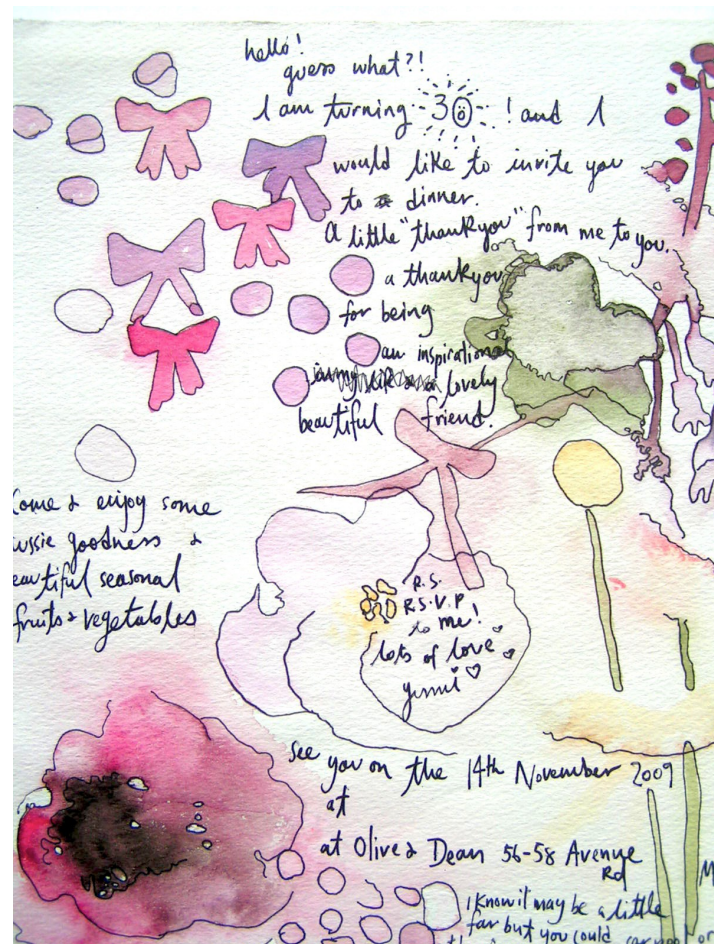 hello!
guess what?!
I am turning 30 ! and I
would like to invite you
to dinner.
A little "thankyou" from me to you.
a thankyou
for being
an inspirational
lovely
beautiful friend.
Come & enjoy some
ussie goodness &
eautiful seasonal
fruits & vegetables
R.S.
R.S.V.P
to me!
lots of love
yimmi
See you on the 14th November 2009
at
at Olive & Dean 56-58 Avenue
Rd
M
I know it may be a little
far but you could